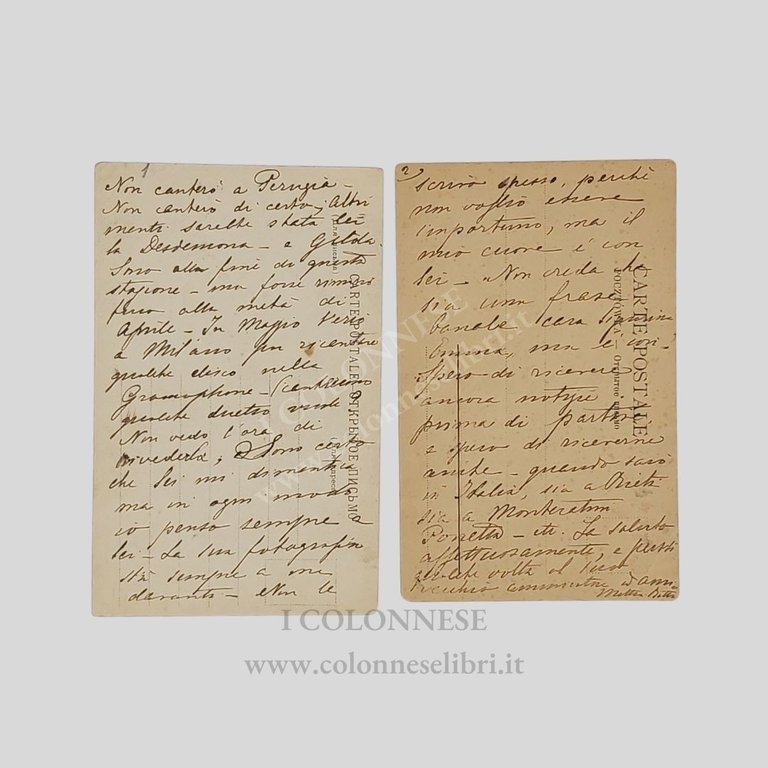 1
Non canterò a Perugia -
Non canterò di certo, Altri
menti sarebbe stata Lei
la Desdemona - e Gilda.
Sono alla fine di questa
stagione - ma forse rimarrò
fino alla metà di
Aprile - In Maggio verrò
a Milano per ricantare
qualche disco nella
Gramophone - (cantiamo
qualche duetto
Non vedo l'ora di
rivederla, Sono certo
che Lei mi dimentica
ma in ogni modo
io penso sempre a
Lei - La sua fotografia
stà sempre a me
davanti - Non le
CARTE POSTALE. ОТКРЫТОЕ ПИСЬМО
2
scrivo spesso, perchè
non voglio essere
importuno, ma il
mio cuore è con
Lei - Non creda
sia una frase
banale cara Signorina
Emma, ma è così
Spero di ricevere
ancora notizie
prima di partire
e spero di riceverne
anche - quando sarò
in Italia, sia a Rieti
sia a Montecatini
Porretta - etc. La saluto
affettuosamente, e pensi
qualche volta al suo
vecchio ammiratore ed amico
Mattia Batti
CARTE POSTALE
POCZTÓWKA - Открытое письмо
I COLONNESE
www.colonneselibri.it
I COLONNESE
www.colonneselibri.it